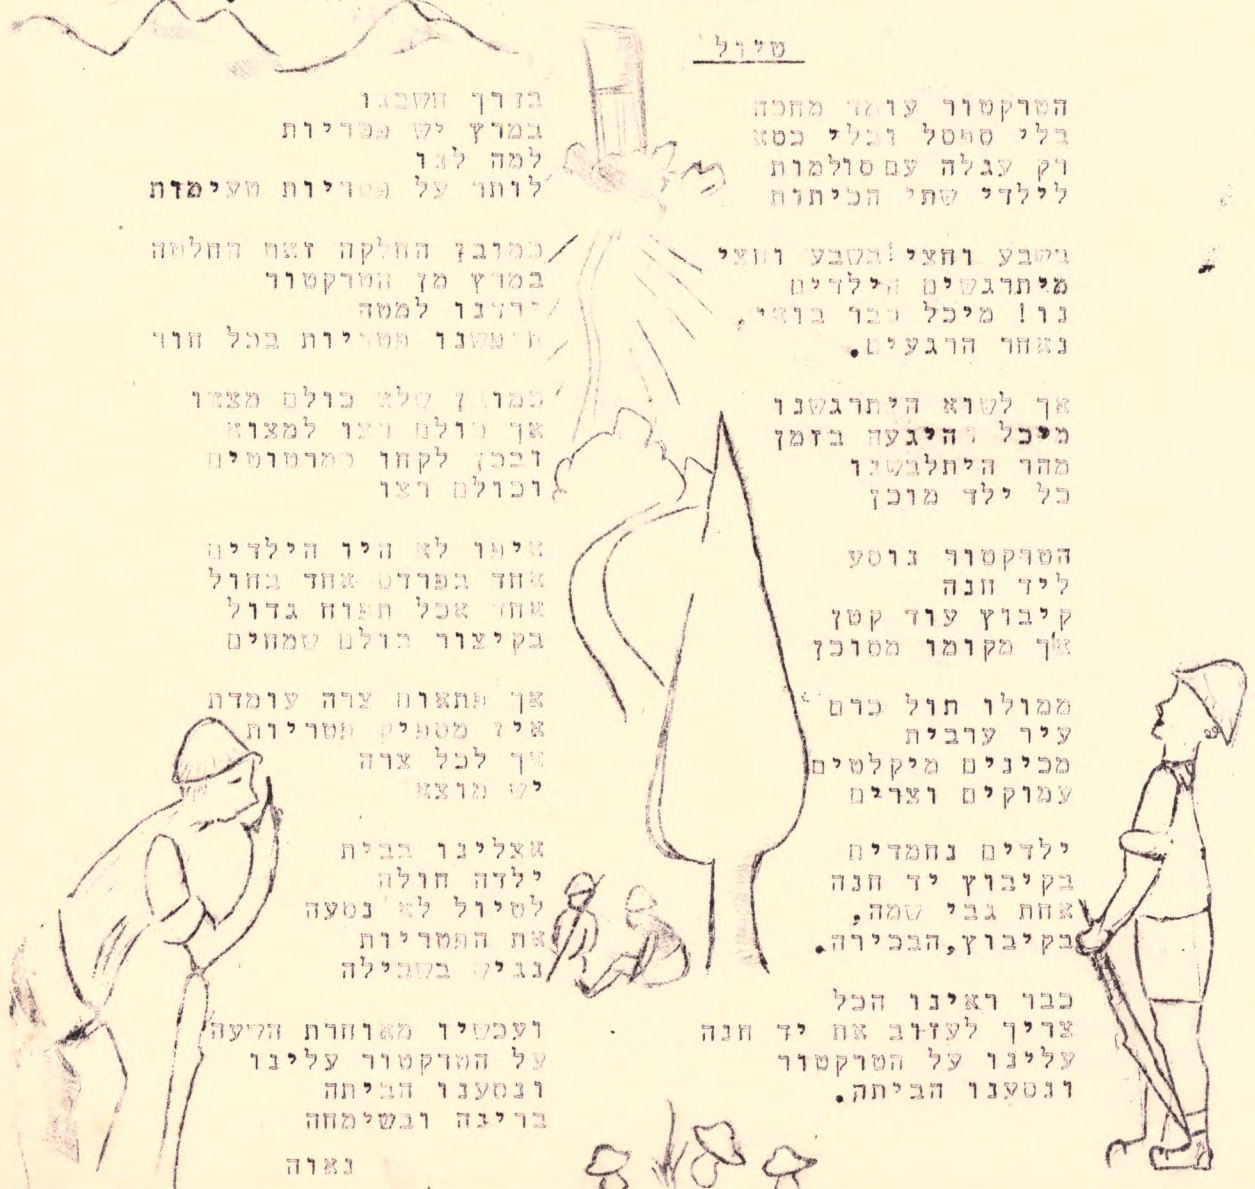 טיול
הטרקטור עומד מחכה
בלי ספסל ובלי כסא
רק עגלה עם סולמות
לילדי שתי הכיתות
בשבע וחצי!בשבע וחצי
מיתרגשים הילדים
נו! מיכל כבר בואי,
נאחר הרגעים.
אך לשוא היתרגשנו
מיכל היגעה בזמן
מהר היתלבשנו
כל ילד מוכן
הטרקטור נוסע
ליד חנה
קיבוץ עוד קטן
אך מקומו מסוכן
ממולו תול כרם
עיר ערבית
מכינים מיקלטים
עמוקים וצרים
ילדים נחמדים
בקיבוץ יד חנה
אחת גבי שמה,
בקיבוץ,הבכירה.
כבר ראינו הכל
צריך לעזוב את יד חנה
עלינו על הטרקטור
ונסענו הביתה.
בדרך חשבנו
במרץ יש פטריות
למה לנו
לותר על פטריות טעימות
כמובן החלקה זאת החלטה
במרץ מן הטרקטור
ירדנו למטה
חיפשנו פטריות בכל חור
כמובן שלא כולם מצאו
אך כולם רצו למצוא
ובכן לקחו סמרטוטים
וכולם רצו
איפו לא היו הילדים
אחד בפרדס אחד בחול
אחד אכל תפוח גדול
בקיצור כולם שמחים
אך פתאום צרה עומדת
אין מספיק פטריות
אך לכל צרה
יש מוצא
אצלינו בבית
ילדה חולה
לטיול לא נסעה
את הפטריות
נגיש בשבילה
ועכשיו מאוחרת השעה
על הטרקטור עלינו
ונסענו הביתה
ברינה ובשימחה
נאוה